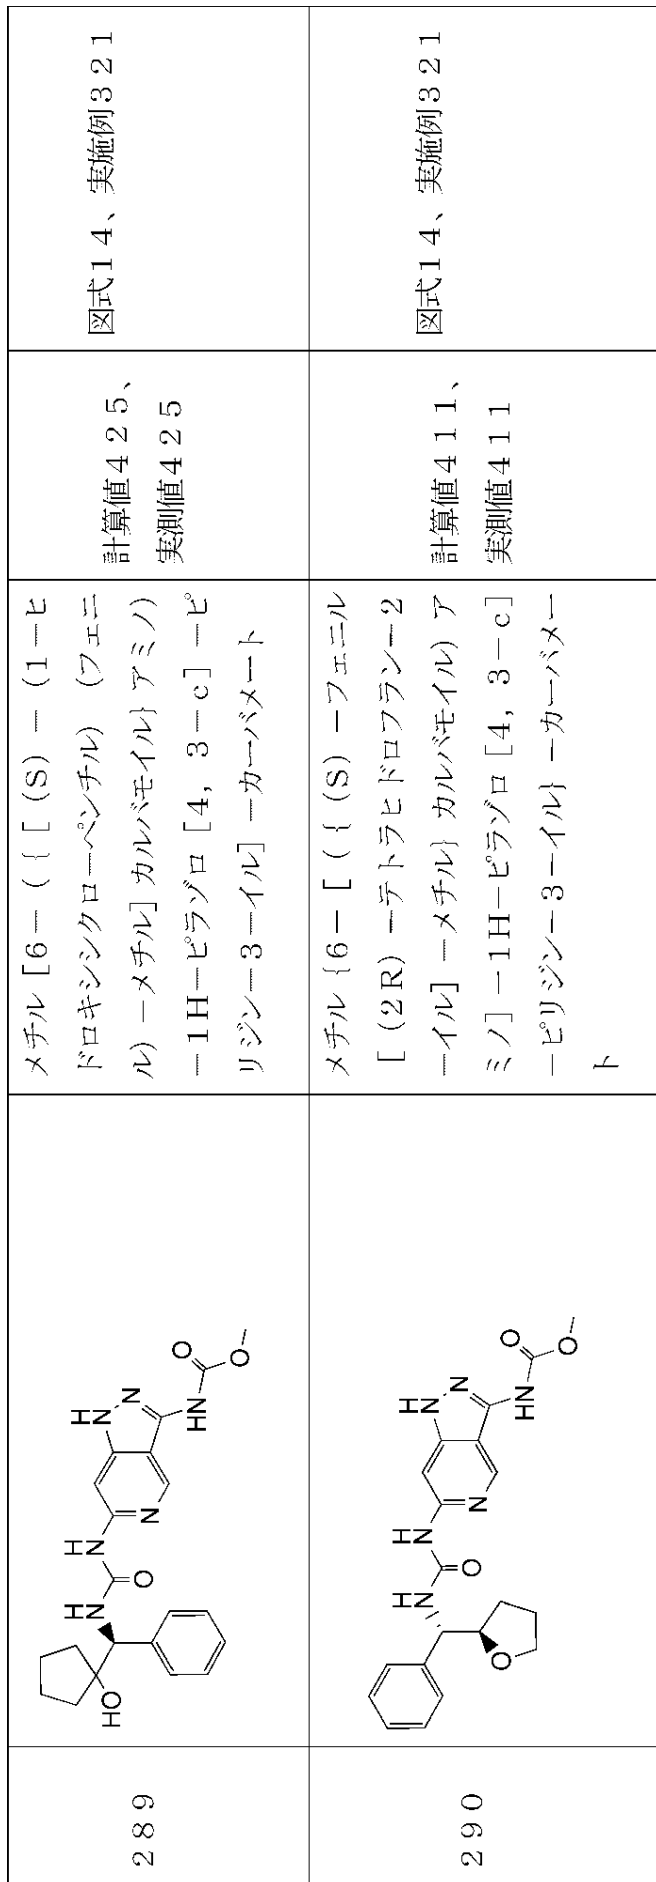 289
メチル [6-({[(S)-(1-ヒ
ドロキシシクロ-ペンチル)(フェニ
ル)-メチル]カルバモイル}アミノ)
-1H-ピラゾロ[4,3-c]-ピ
リジン-3-イル]-カーバメート
計算値425、
実測値425
図式14、実施例321
290
メチル{6-[({(S)-フェニル
[(2R)-テトラヒドロフラン-2
-イル]-メチル}カルバモイル)ア
ミノ]-1H-ピラゾロ[4,3-c]
-ピリジン-3-イル}-カーバメー
ト
計算値411、
実測値411
図式14、実施例321